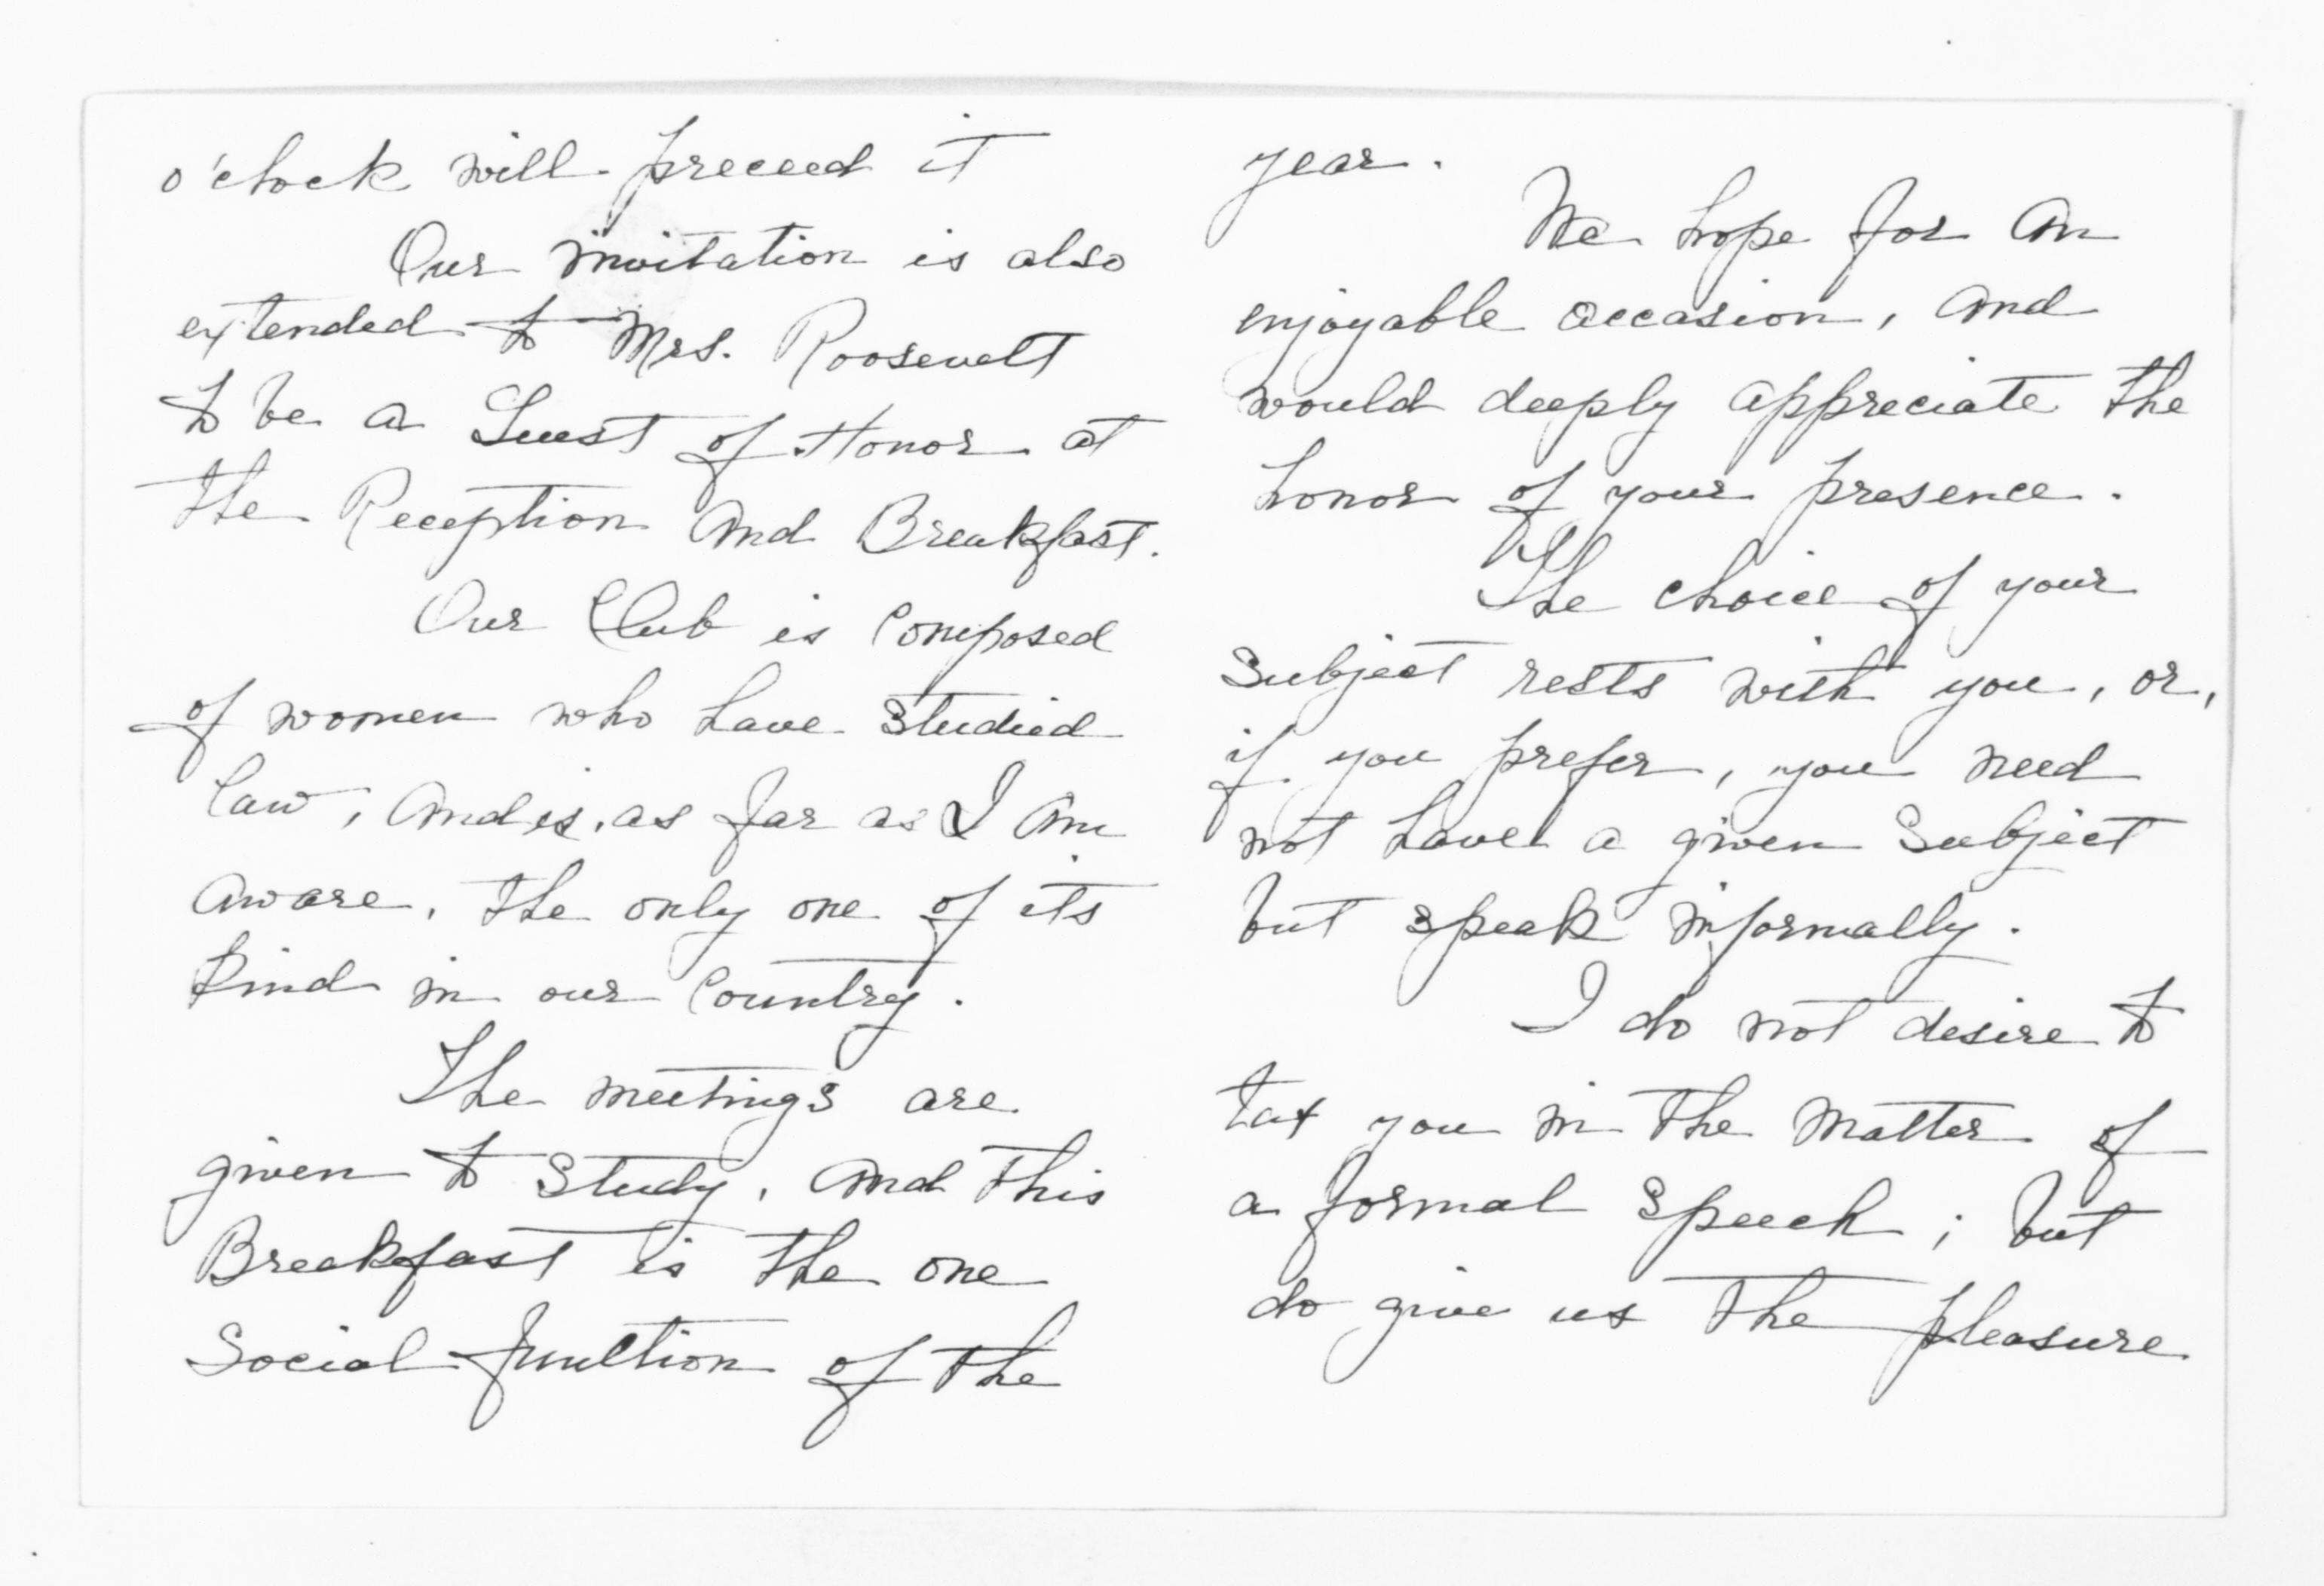 o'clock will preceed it
Our invitation is also
extended to Mrs. Roosevelt
to be a Guest of Honor at
the Reception and Breakfast.
Our Club is Composed
of women who have studied
law, and is, as far as I am
aware, the only one of its
kind in our Country.
The meetings are
given to Study, and this
Breakfast is the one
Social function of the
year.
We hope for an
enjoyable occasion, and
would deeply appreciate the
honor of your presence.
The choice of your
Subject rests with you, or,
if you prefer, you need
not have a given Subject
but speak informally.
I do not desire to
tax you in the matter of
a formal speech; but
do give us the pleasure